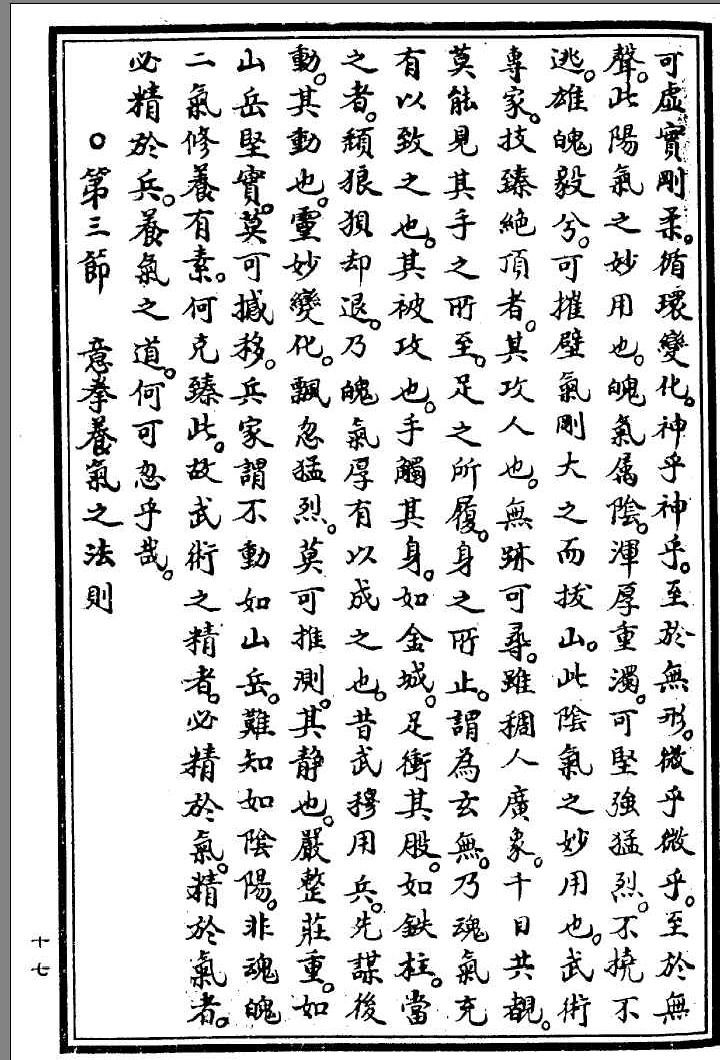 可虛實剛柔。循環變化。神乎神乎。至於無形。微乎微乎。至於無
聲。此陽氣之妙用也。魄氣屬陰。渾厚重濁。可堅強猛烈。不撓不
逃。雄魄毅兮。可摧壁氣剛大之而拔山。此陰氣之妙用也。武術
專家。技臻絕頂者。其攻人也。無跡可尋。雖稠人廣象。千目共覩。
莫能見其手之所至。足之所履。身之所止。謂為玄無。乃魂氣充
有以致之也。其被攻也。手觸其身。如金城。足衝其股。如鉄柱。當
之者。顏狼狽却退。乃魄氣厚有以成之也。昔武穆用兵。先謀後
動。其動也。靈妙變化。飄忽猛烈。莫可推測。其静也。嚴整莊重。如
山岳堅實。莫可撼移。兵家謂不動如山岳。難知如陰陽。非魂魄
二氣修養有素。何克臻此。故武術之精者。必精於氣。精於氣者。
必精於兵。養氣之道。何可忽乎哉。
○第三節 意拳養氣之法則
十七